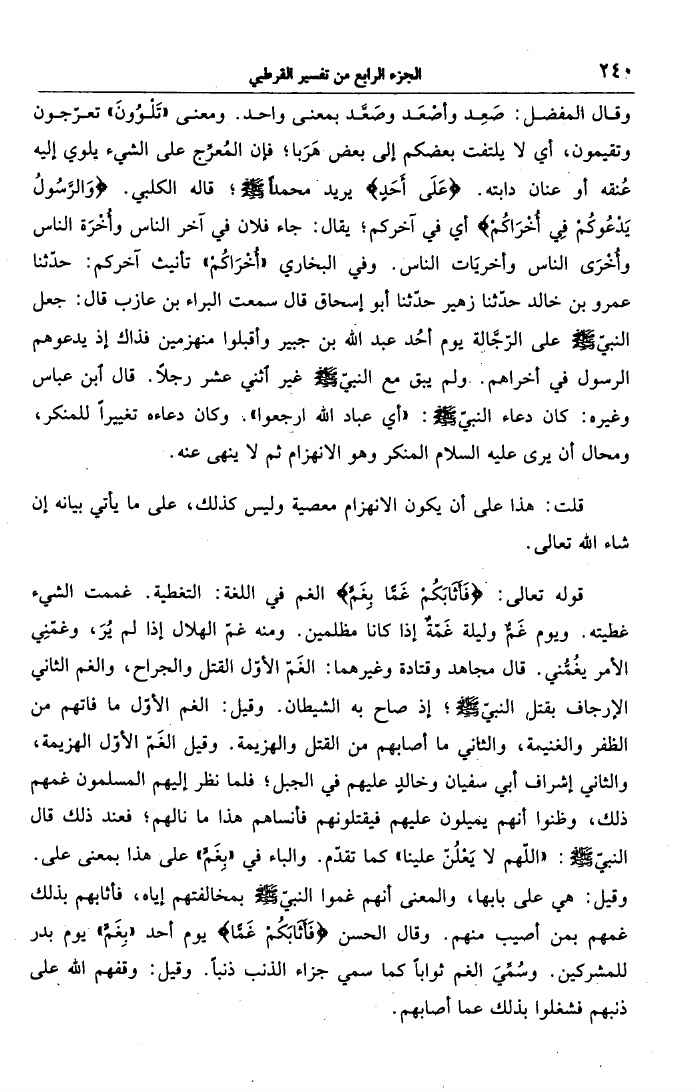 ٢٤٠ الجزء الرابع من تفسير القرطبي
وقال المفضل: صَعِد وأصْعَد وصَعَّد بمعنى واحد. ومعنى «تَلْوُونَ» تعرّجون
وتقيمون، أي لا يلتفت بعضكم إلى بعض هَرَبا؛ فإن المُعرِّج على الشيء يلوي إليه
عُنقه أو عنان دابته. ﴿عَلَى أَحَدٍ﴾ يريد محمداً ﷺ؛ قاله الكلبي. ﴿وَالرَّسُولُ
يَدْعُوكُمْ فِي أُخْرَاكُمْ﴾ أي في آخركم؛ يقال: جاء فلان في آخر الناس وأُخْرَة الناس
وأُخْرَى الناس وأخريَات الناس. وفي البخاري «أُخْرَاكُمْ» تأنيث آخركم: حدّثنا
عمرو بن خالد حدّثنا زهير حدّثنا أبو إسحاق قال سمعت البراء بن عازب قال: جعل
النبيّ ﷺ على الرّجّالة يوم أحُد عبد الله بن جبير وأقبلوا منهزمين فذاك إذ يدعوهم
الرسول في أخراهم. ولم يبق مع النبيّ ﷺ غير آثني عشر رجلاً. قال آبن عباس
وغيره: كان دعاء النبيّ ﷺ: «أي عباد الله ارجعوا». وكان دعاءه تغييراً للمنكر،
ومحال أن يرى عليه السلام المنكر وهو الانهزام ثم لا ينهى عنه.
قلت: هذا على أن يكون الانهزام معصية وليس كذلك، على ما يأتي بيانه إن
شاء الله تعالى.
قوله تعالى: ﴿فَأَثَابَكُمْ غَمًّا بِغَمٍّ﴾ الغم في اللغة: التغطية. غممت الشيء
غطيته. ويوم غَمٌّ وليلة غَمّةٌ إذا كانا مظلمين. ومنه غمّ الهلال إذا لم يُرَ، وغمّنِي
الأمر يغُمُّني. قال مجاهد وقتادة وغيرهما: الغَمّ الأوّل القتل والجراح، والغم الثاني
الإرجاف بقتل النبيّ ﷺ؛ إذ صاح به الشيطان. وقيل: الغم الأوّل ما فاتهم من
الظفر والغنيمة، والثاني ما أصابهم من القتل والهزيمة. وقيل الغَمّ الأوّل الهزيمة،
والثاني إشراف أبي سفيان وخالدٍ عليهم في الجبل؛ فلما نظر إليهم المسلمون غمهم
ذلك، وظنوا أنهم يميلون عليهم فيقتلونهم فأنساهم هذا ما نالهم؛ فعند ذلك قال
النبيّ ﷺ: «اللّهم لا يَعْلُنّ علينا» كما تقدّم. والباء في «بِغَمٍّ» على هذا بمعنى على.
وقيل: هي على بابها، والمعنى أنهم غموا النبيّ ﷺ بمخالفتهم إياه، فأثابهم بذلك
غمهم بمن أصيب منهم. وقال الحسن ﴿فَأَثَابَكُمْ غَمًّا﴾ يوم أحد «بِغَمٍّ» يوم بدر
للمشركين. وسُمِّيَ الغم ثواباً كما سمي جزاء الذنب ذنباً. وقيل: وقفهم الله على
ذنبهم فشغلوا بذلك عما أصابهم.